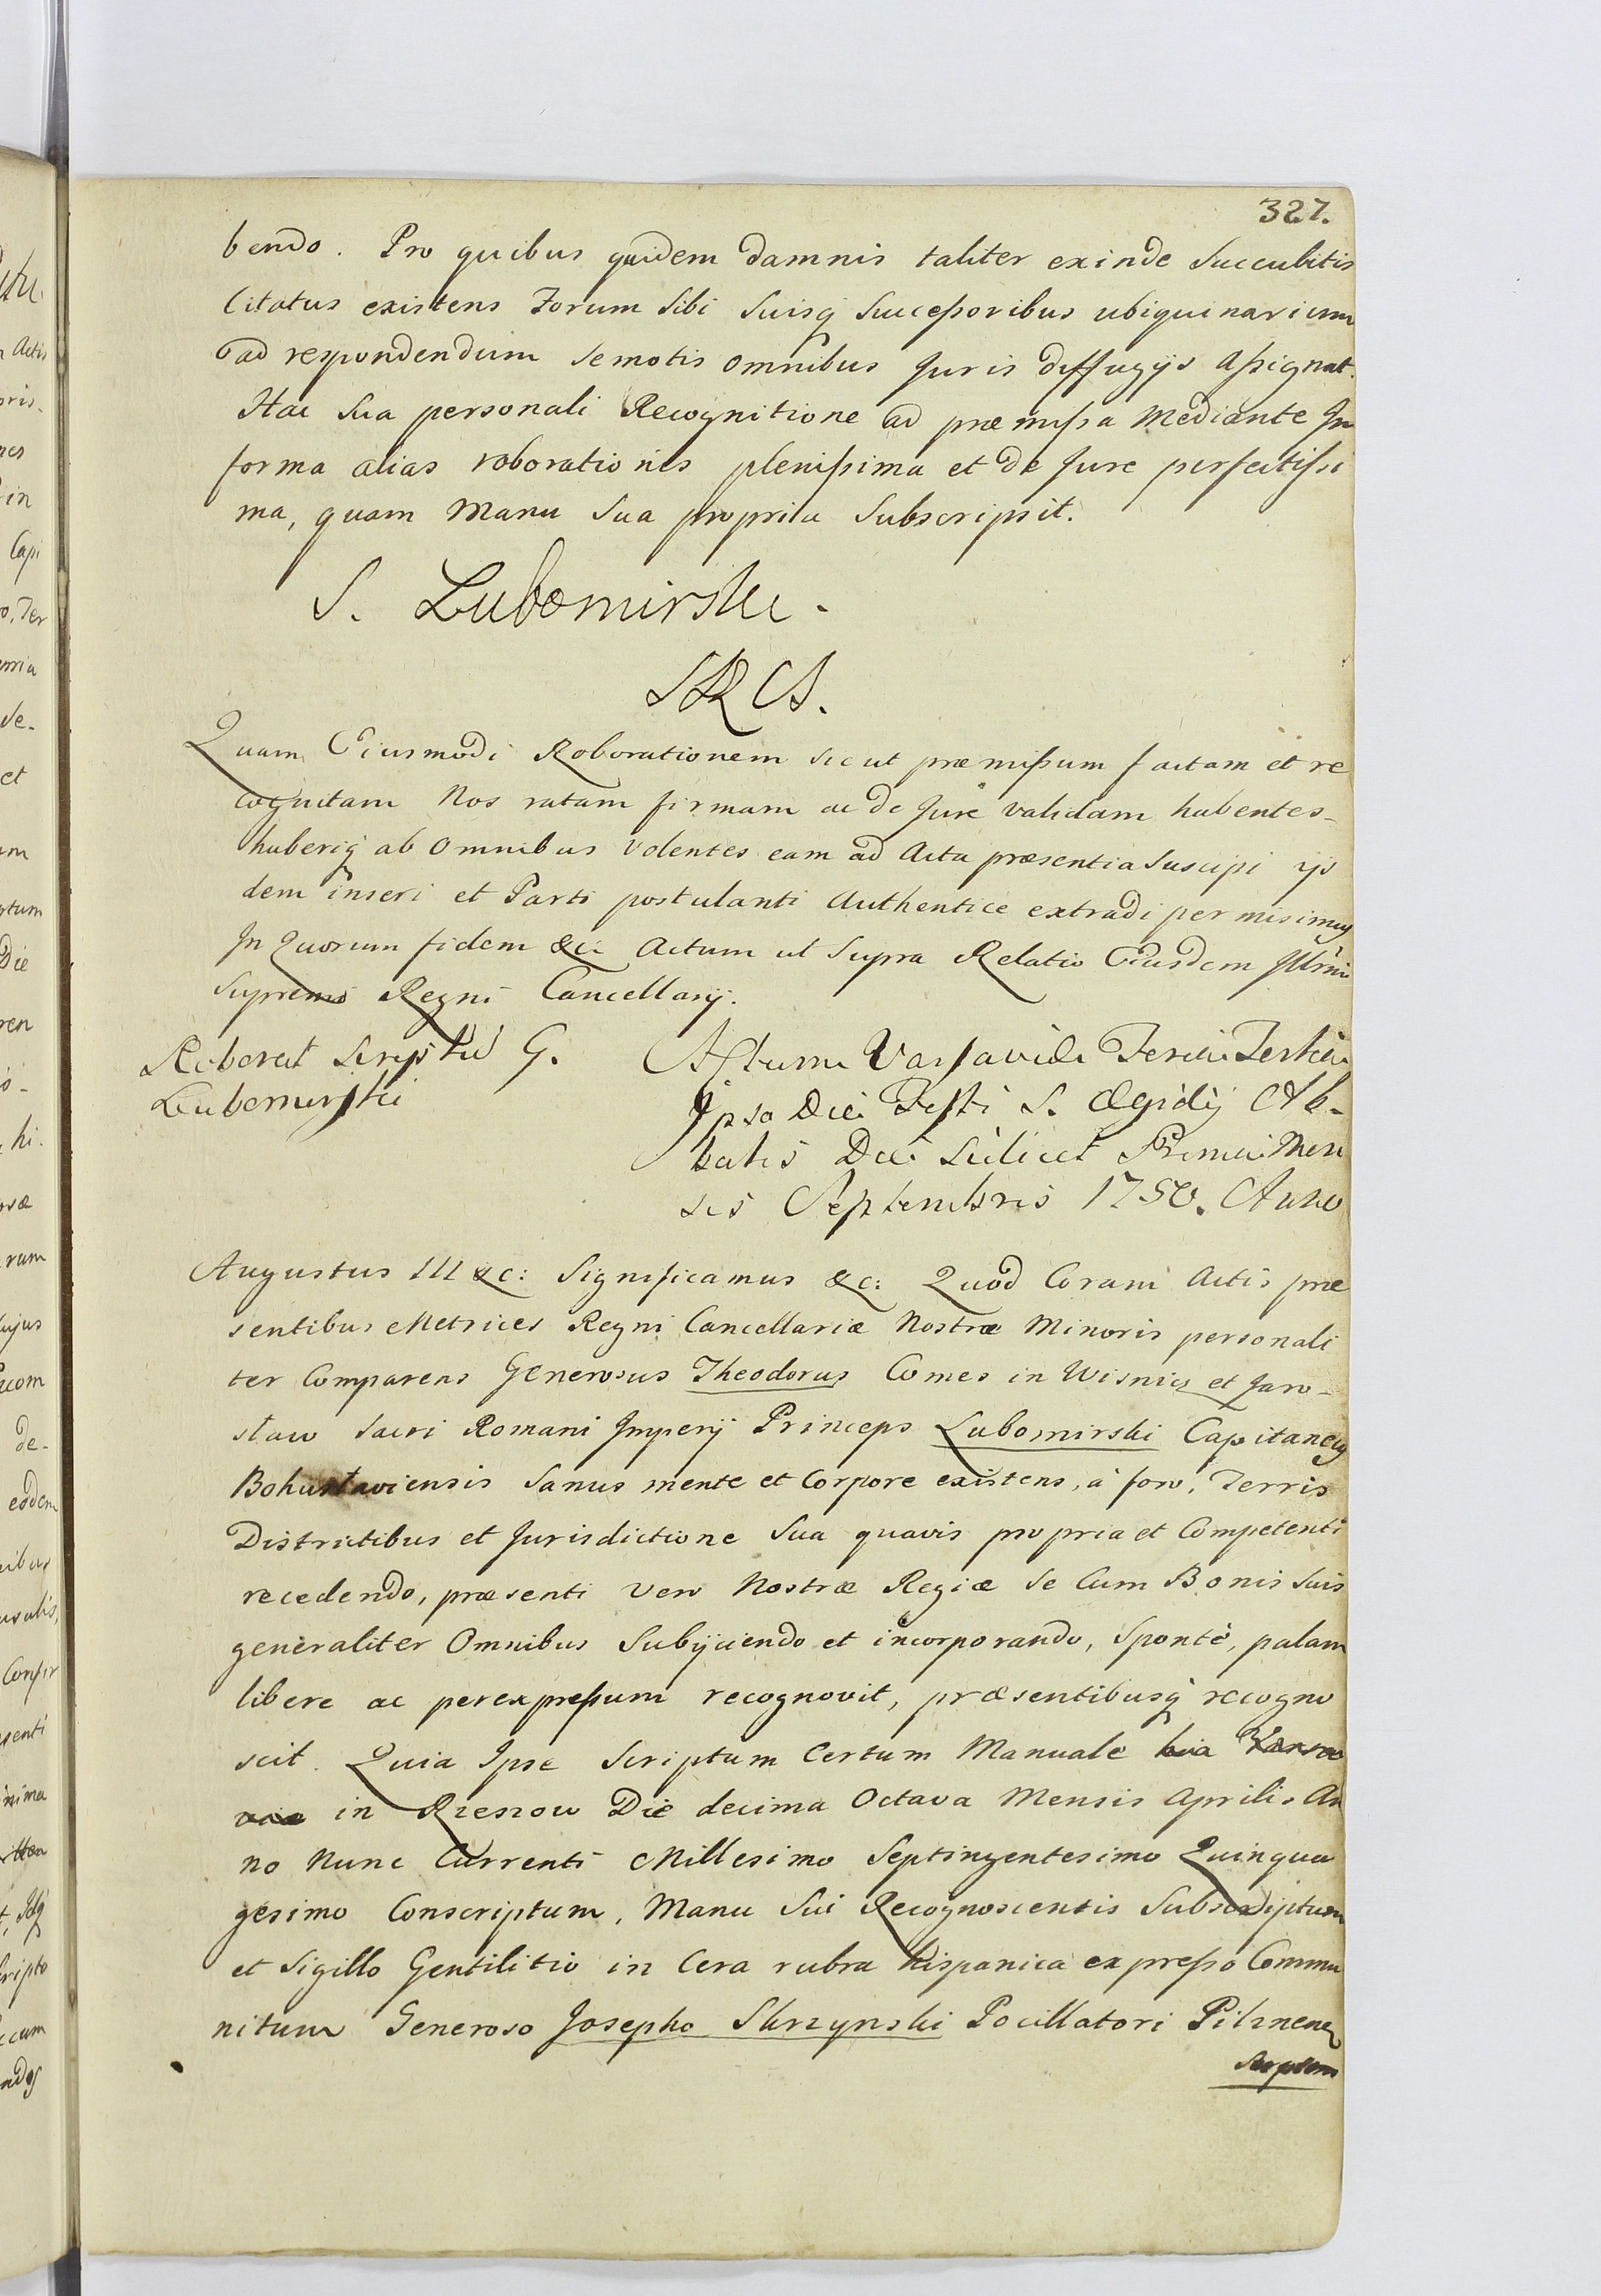 327.
bendo. Pro quibus quidem damnis taliter exinde succubitis
Citatus existens Forum sibi suisq successoribus ubiquinarium
ad respondendum semotis omnibus Juris diffugijs assignat.
Hac sua personali Recognitione ad præmissa mediante In
forma alias roborationis plenissima et de Jure perfectissi
ma, quam Manu sua propria subscripsit.
S. Lubomirski.
Quam Eiusmodi Roborationem sicut præmissum factam et re
cognitam Nos ratam firmam ac de Jure validam habentes
haberiq ab omnibus volentes eam ad Acta præsentia suscipi ijs
dem inseri et Parti postulanti Authentice extradi permisimus
In quorum fidem &c: Actum ut supra Relatio Eiusdem Illrmi
Supremi Regni Cancellarij.
Roborat Scriptu G.
Lubomirski
Actum Varsaviæ Feria Tertia
Ipso Die Festi S. Ægidij Ab-
batis Die scilicet Prima Men
sis Septembris 1750. Anno
Augustus III &c: Significamus &c: Quod Coram Actis præ
sentibus Metrices Regni Cancellariæ Nostræ Minoris personali
ter Comparens Generosus Theodorus Comes in Wisnicz et Jaro-
slaw Sacri Romani Imperij Princeps Lubomirski Capitaneus
Bohuslaviensis Sanus mente et Corpore existens, à foro, Terris
Districtibus et Jurisdictione Sua quavis propria et Competenti
recedendo, præsenti vero Nostræ Regiæ se Cum Bonis suis
generaliter Omnibus Subijciendo et incorporando, Spontè, palam
libere ac perexpressum recognovit, præsentibusq recogno
scit. Quia Ipse Scriptum Certum Manuale
in Rzeszow Die decima Octava Mensis Aprilis An
no Nunc Currenti Millesimo Septingentesimo Quinqua
gesimo Conscriptum, Manu Sui Recognoscentis Subscriptum
et Sigillo Gentilitio in Cera rubra hispanica expresso Commu
nitum Generoso Josepho Skrzynski Pocillatori Pilznen